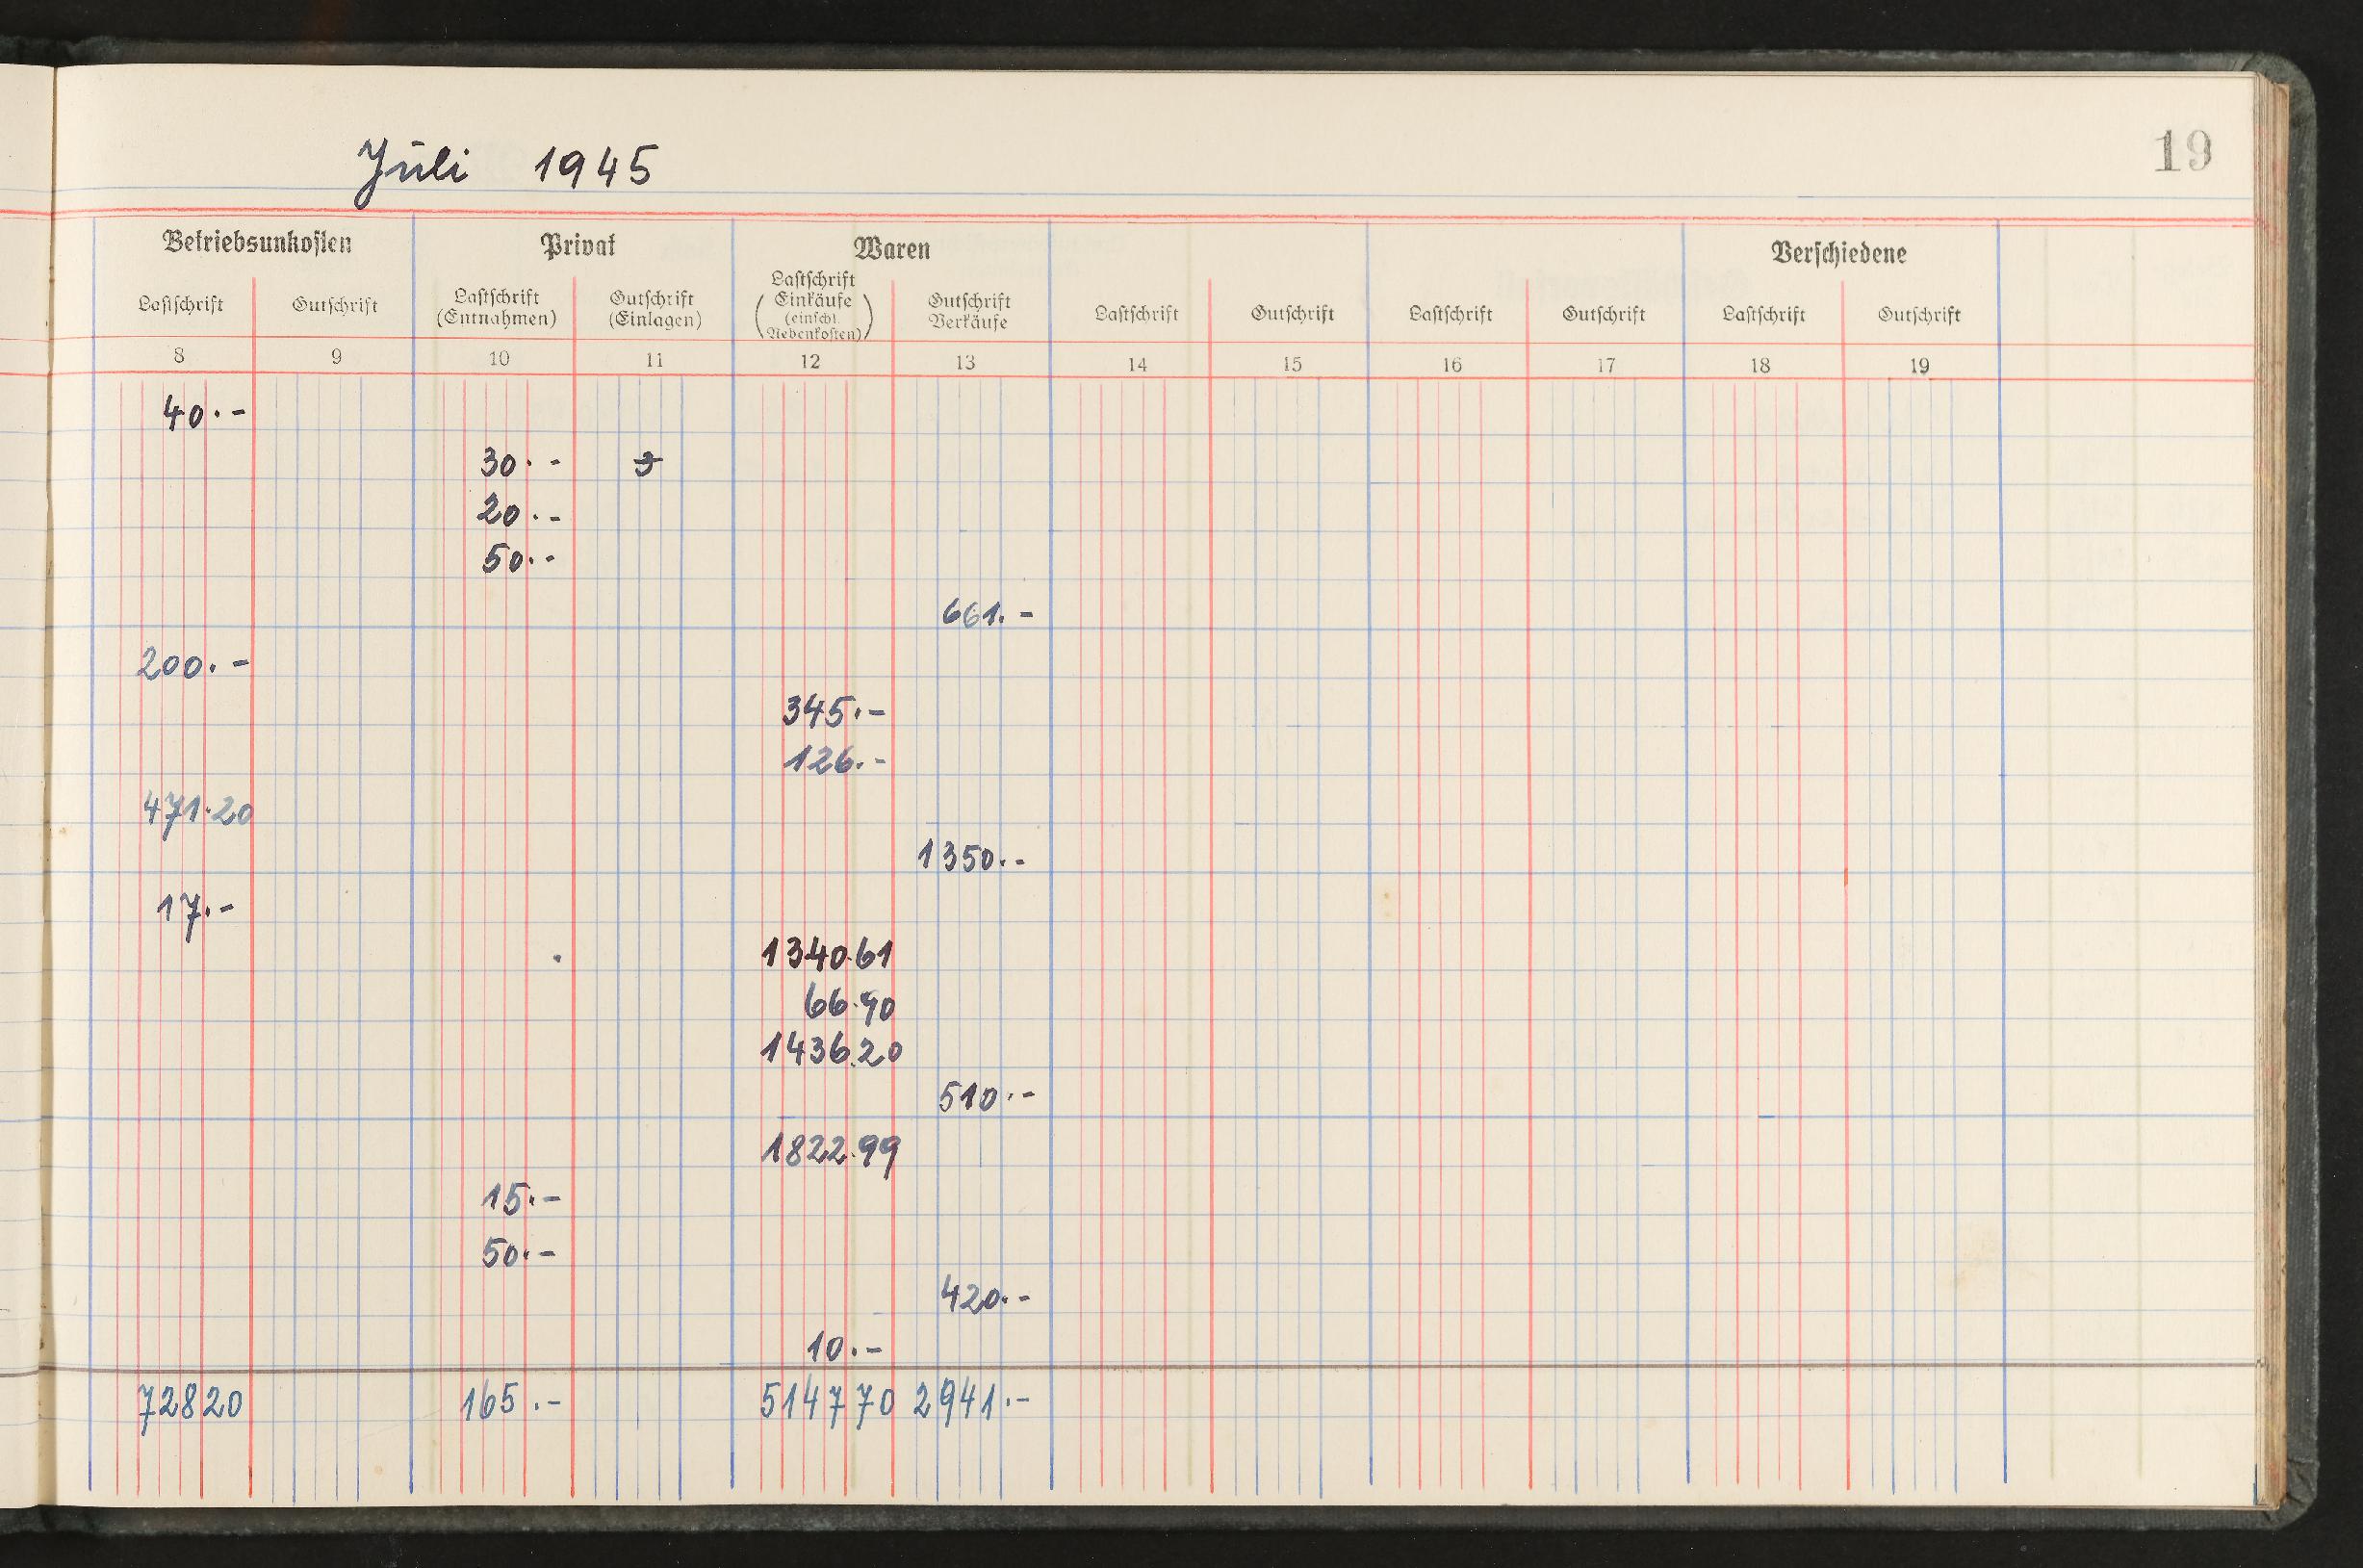 Juli 1945
19
Betriebsunkosten Privat Waren Verschiedene
Lastschrift Gutschrift Lastschrift (Entnahmen) Gutschrift (Einlagen) Lastschrift Einkäufe (einschl. Nebenkosten) Gutschrift Verkäufe Lastschrift Gutschrift Lastschrift Gutschrift Lastschrift Gutschrift
8 9 10 11 12 13 14 15 16 17 18 19
40.-
30.- 3
20.-
50.-
661.-
200.-
345.-
126.-
471.20
1350.-
17.-
1340.61
66.90
1436.20
510.-
1822.99
15.-
50.-
420.-
10.-
72820 165.- 514770 2941.-